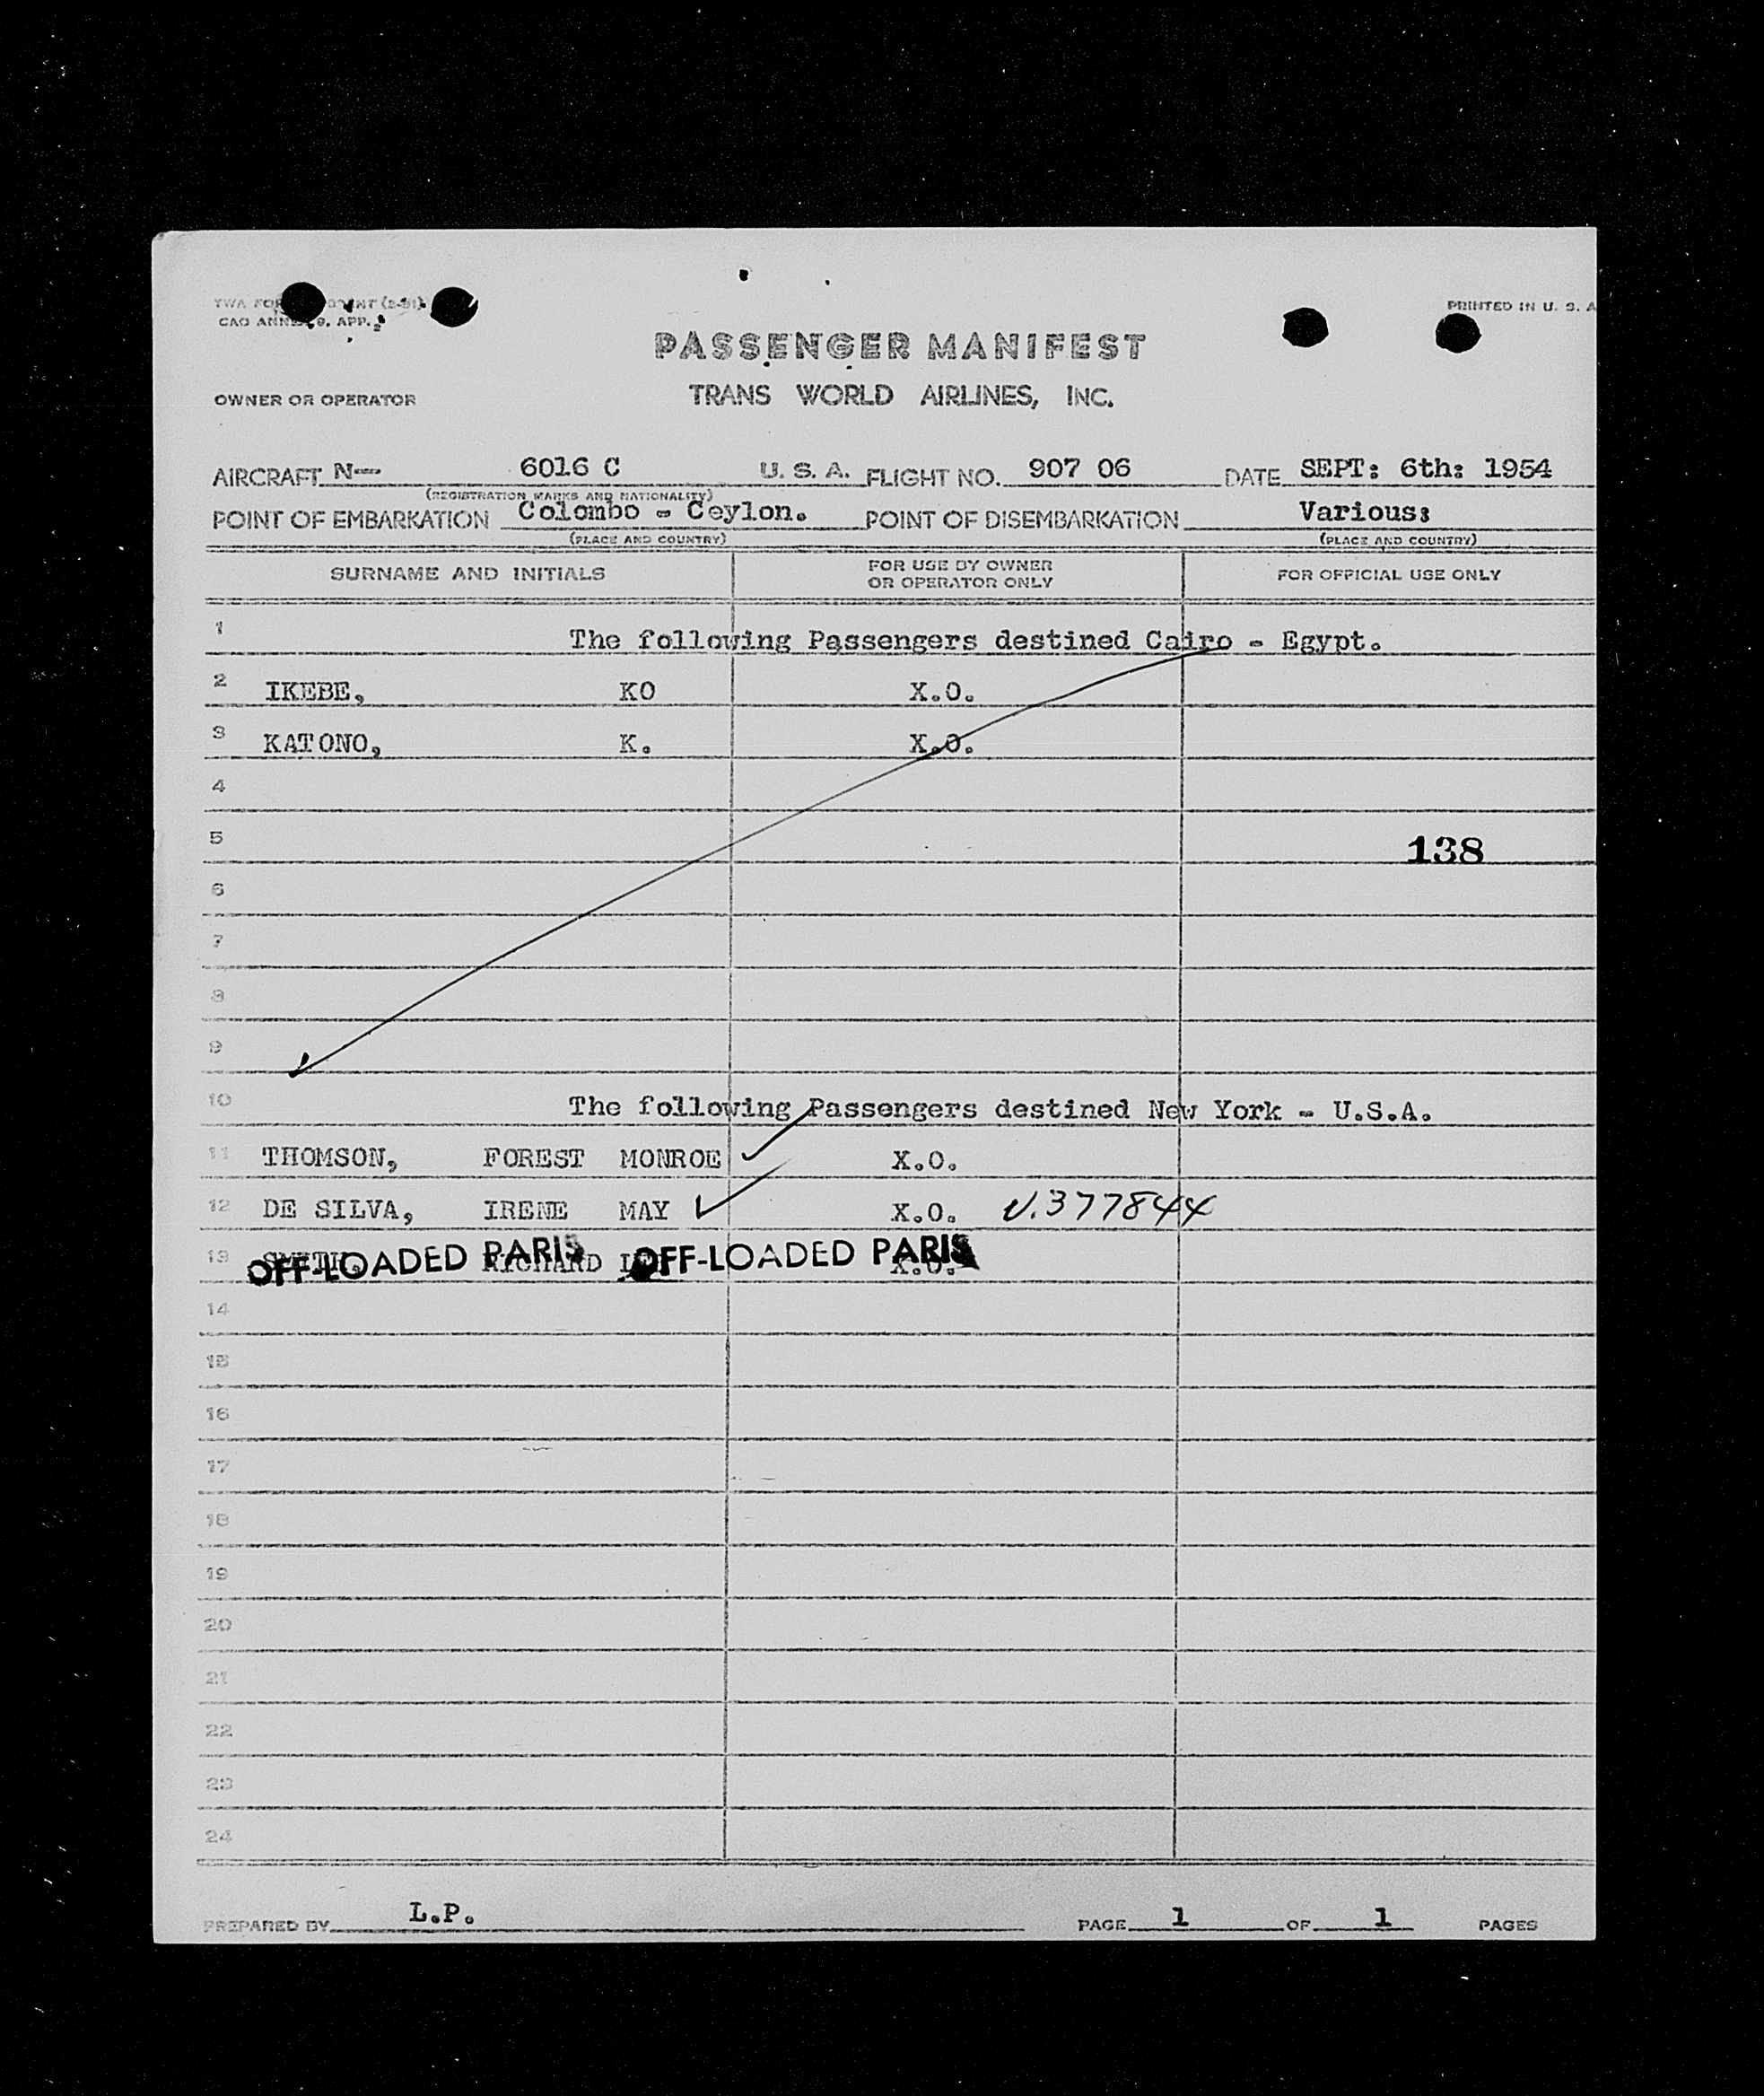 PRINTED IN U. S. A
CAO ANNEX 9, APP. 2
PASSENGER MANIFEST
OWNER OR OPERATOR TRANS WORLD AIRLINES, INC.
AIRCRAFT N— 6016 C U. S. A. FLIGHT NO. 907 06 DATE SEPT: 6th: 1954
(REGISTRATION MARKS AND NATIONALITY)
POINT OF EMBARKATION Colombo - Ceylon. POINT OF DISEMBARKATION Various:
(PLACE AND COUNTRY) (PLACE AND COUNTRY)
SURNAME AND INITIALS FOR USE BY OWNER OR OPERATOR ONLY FOR OFFICIAL USE ONLY
1 The following Passengers destined Cairo - Egypt.
2 IKEBE, KO X.O.
3 KATONO, K. X.O.
4
5 138
6
7
8
9
10 The following Passengers destined New York - U.S.A.
11 THOMSON, FOREST MONROE X.O.
12 DE SILVA, IRENE MAY X.O. V.377844
13 SMITH, RICHARD X.O.
OFF-LOADED PARIS OFF-LOADED PARIS
14
15
16
17
18
19
20
21
22
23
24
PREPARED BY L.P. PAGE 1 OF 1 PAGES